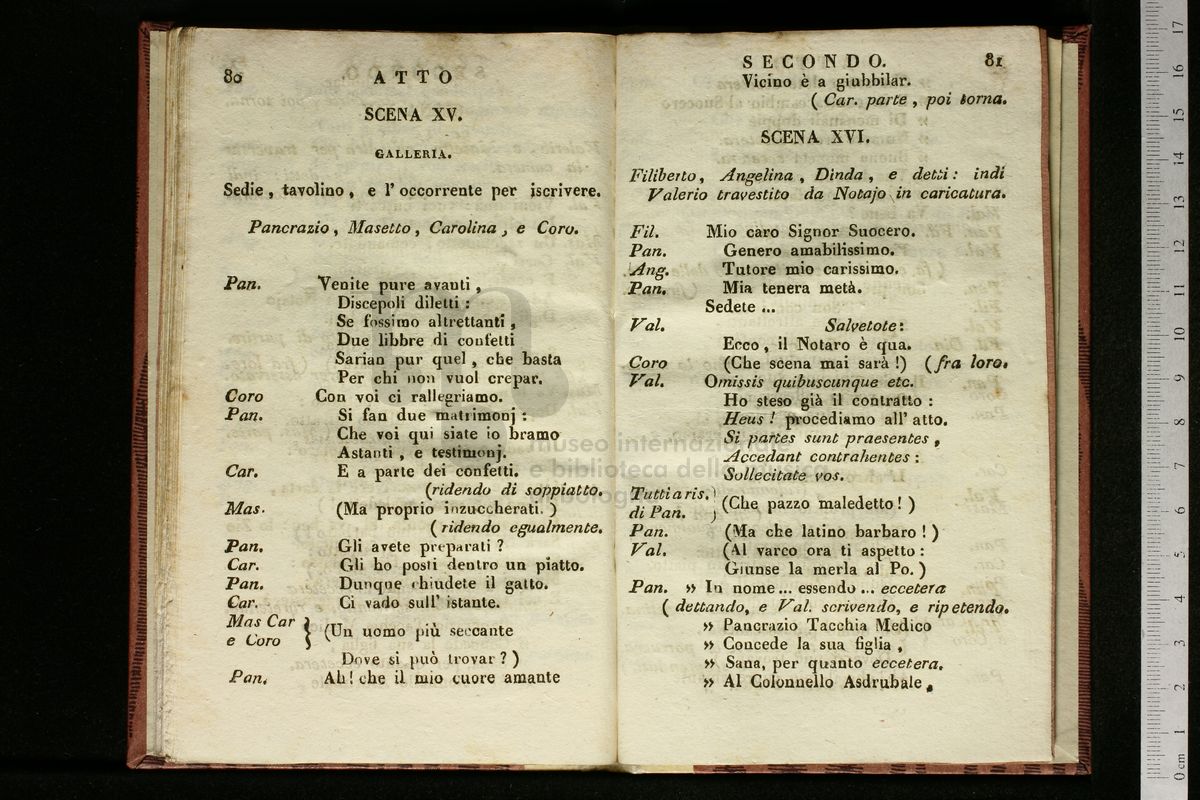 80
ATTO
SCENA XV.
GALLERIA.
Sedie, tavolino, e l'occorrente per iscrivere.
Pancrazio, Masetto, Carolina, e Coro.
Pan. Venite pure avanti,
Discepoli diletti:
Se fossimo altrettanti,
Due libbre di confetti
Sarian pur quel, che basta
Per chi non vuol crepar.
Coro Con voi ci rallegriamo.
Pan. Si fan due matrimonj:
Che voi qui siate io bramo
Astanti, e testimonj.
Car. E a parte dei confetti.
(ridendo di soppiatto.
Mas. (Ma proprio inzuccherati.)
(ridendo egualmente.
Pan. Gli avete preparati?
Car. Gli ho posti dentro un piatto.
Pan. Dunque chiudete il gatto.
Car. Ci vado sull' istante.
Mas Car
e Coro } (Un uomo più seccante
Dove si può trovar?)
Pan. Ah! che il mio cuore amante
SECONDO. 81
Vicino è a giubbilar.
(Car. parte, poi torna.
SCENA XVI.
Filiberto, Angelina, Dinda, e detti: indi
Valerio travestito da Notajo in caricatura.
Fil. Mio caro Signor Suocero.
Pan. Genero amabilissimo.
Ang. Tutore mio carissimo.
Pan. Mia tenera metà.
Sedete...
Val. Salvetote:
Ecco, il Notaro è qua.
Coro (Che scena mai sarà!) (fra loro.
Val. Omissis quibuscunque etc.
Ho steso già il contratto:
Heus! procediamo all' atto.
Si partes sunt praesentes,
Accedant contrahentes:
Sollecitate vos.
Tutti a ris.
di Pan. ) (Che pazzo maledetto!)
Pan. (Ma che latino barbaro!)
Val. (Al varco ora ti aspetto:
Giunse la merla al Po.)
Pan. » In nome... essendo... eccetera
(dettando, e Val. scrivendo, e ripetendo.
» Pancrazio Tacchia Medico
» Concede la sua figlia,
» Sana, per quanto eccetera.
» Al Colonnello Asdrubale,
museo internazionale
e biblioteca della musica
17
16
15
14
13
12
11
10
9
8
7
6
5
4
3
2
1
0 cm